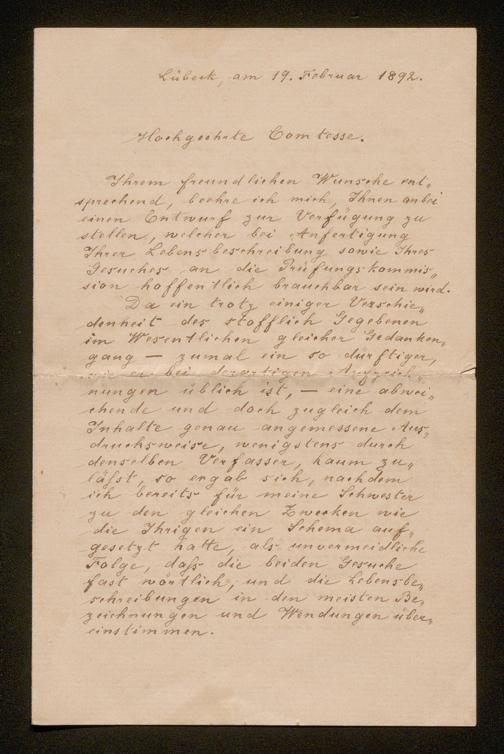 Lübeck, am 19. Februar 1892.
Hochgeehrte Comtesse.
Ihrem freundlichen Wunsche ent„
sprechend, beehre ich mich, Ihnen anbei
einen Entwurf zur Verfügung zu
stellen, welcher bei Anfertigung
Ihrer Lebensbeschreibung sowie Ihres
Gesuches an die Prüfungskommis„
sion hoffentlich brauchbar sein wird.
Da ein trotz einiger Verschie„
denheit des stofflich Gegebenen
im Wesentlichen gleicher Gedanken„
gang — zumal ein so dürftiger,
wie er bei derartigen Aufzeich„
nungen üblich ist, — eine abwei„
chende und doch zugleich dem
Inhalte genau angemessene Aus„
drucksweise, wenigstens durch
denselben Verfasser, kaum zu„
läßt, so ergab sich, nachdem
ich bereits für meine Schwester
zu den gleichen Zwecken wie
die Ihrigen ein Schema auf„
gesetzt hatte, als unvermeidliche
Folge, daß die beiden Gesuche
fast wörtlich, und die Lebensbe„
schreibungen in den meisten Be„
zeichnungen und Wendungen über„
einstimmen.